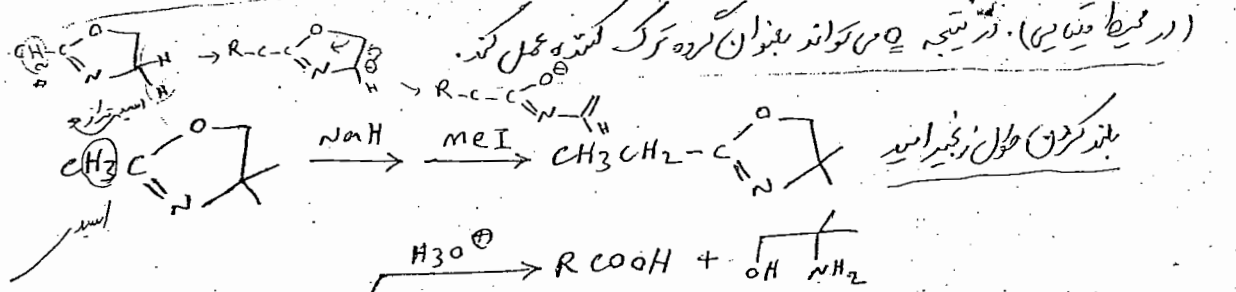 (در محیط قلیایی). در نتیجه O می تواند بعنوان گروه ترک کننده عمل کند.
CH2 C O N H H → R-C-C O N ⊖ H → R-C-C O⊖ N H
CH3 C O N NaH → MeI → CH3CH2-C O N بلند کردن طول زنجیر اسید
اسید
H3O⊕ → RCOOH + OH NH2